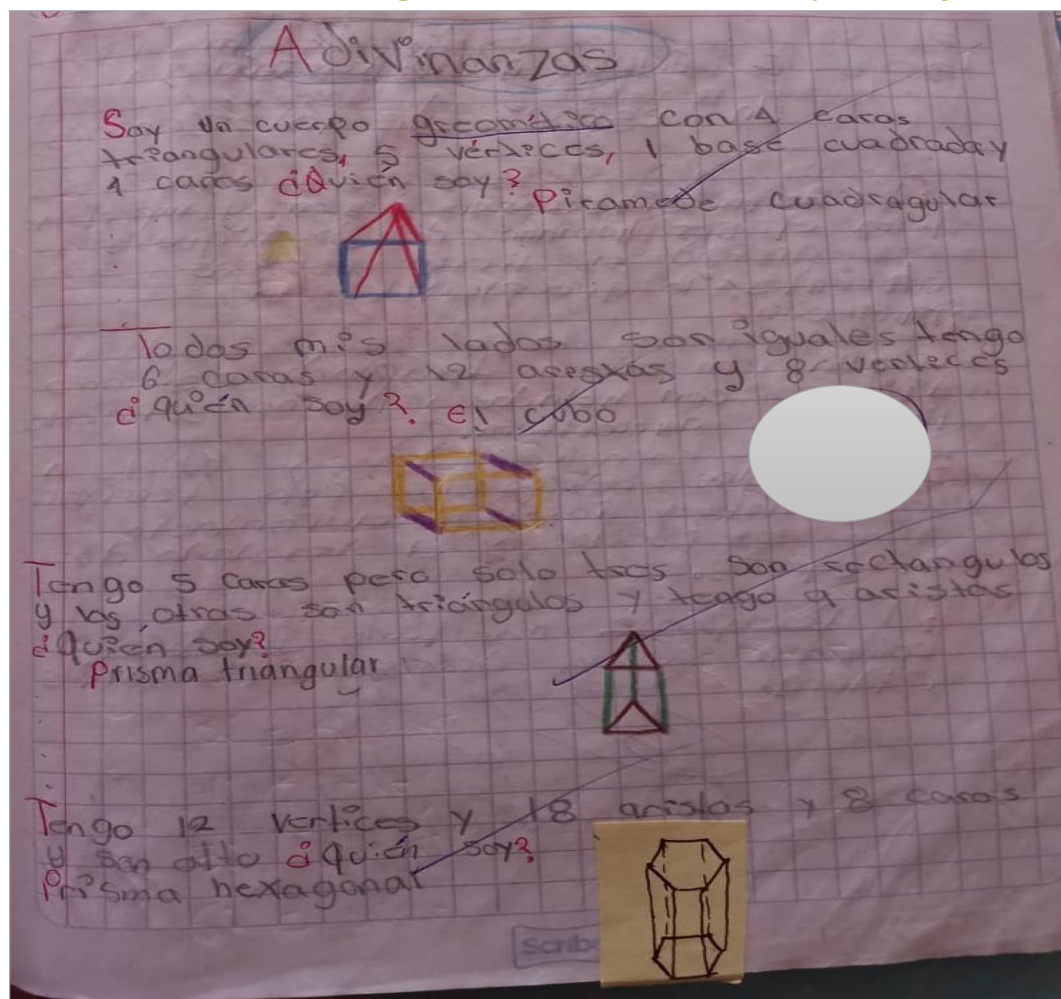 Adivinanzas
Soy un cuerpo greométrico con 4 caras
triangulares, 5 vértices, 1 base cuadrada y
4 caras ¿Quién soy? Piramede cuadragular
Todos mis lados son iguales tengo
6 caras y 12 arestas y 8 verteces
¿quién soy? El cubo
Tengo 5 caras pero solo tres son rectangulos
y las otras son triángulos y tengo 9 aristas
¿Quién soy?
Prisma triangular
Tengo 12 vertices y 18 aristas y 8 caras
y son alto ¿quién soy?
Prisma hexagonal
Scrib